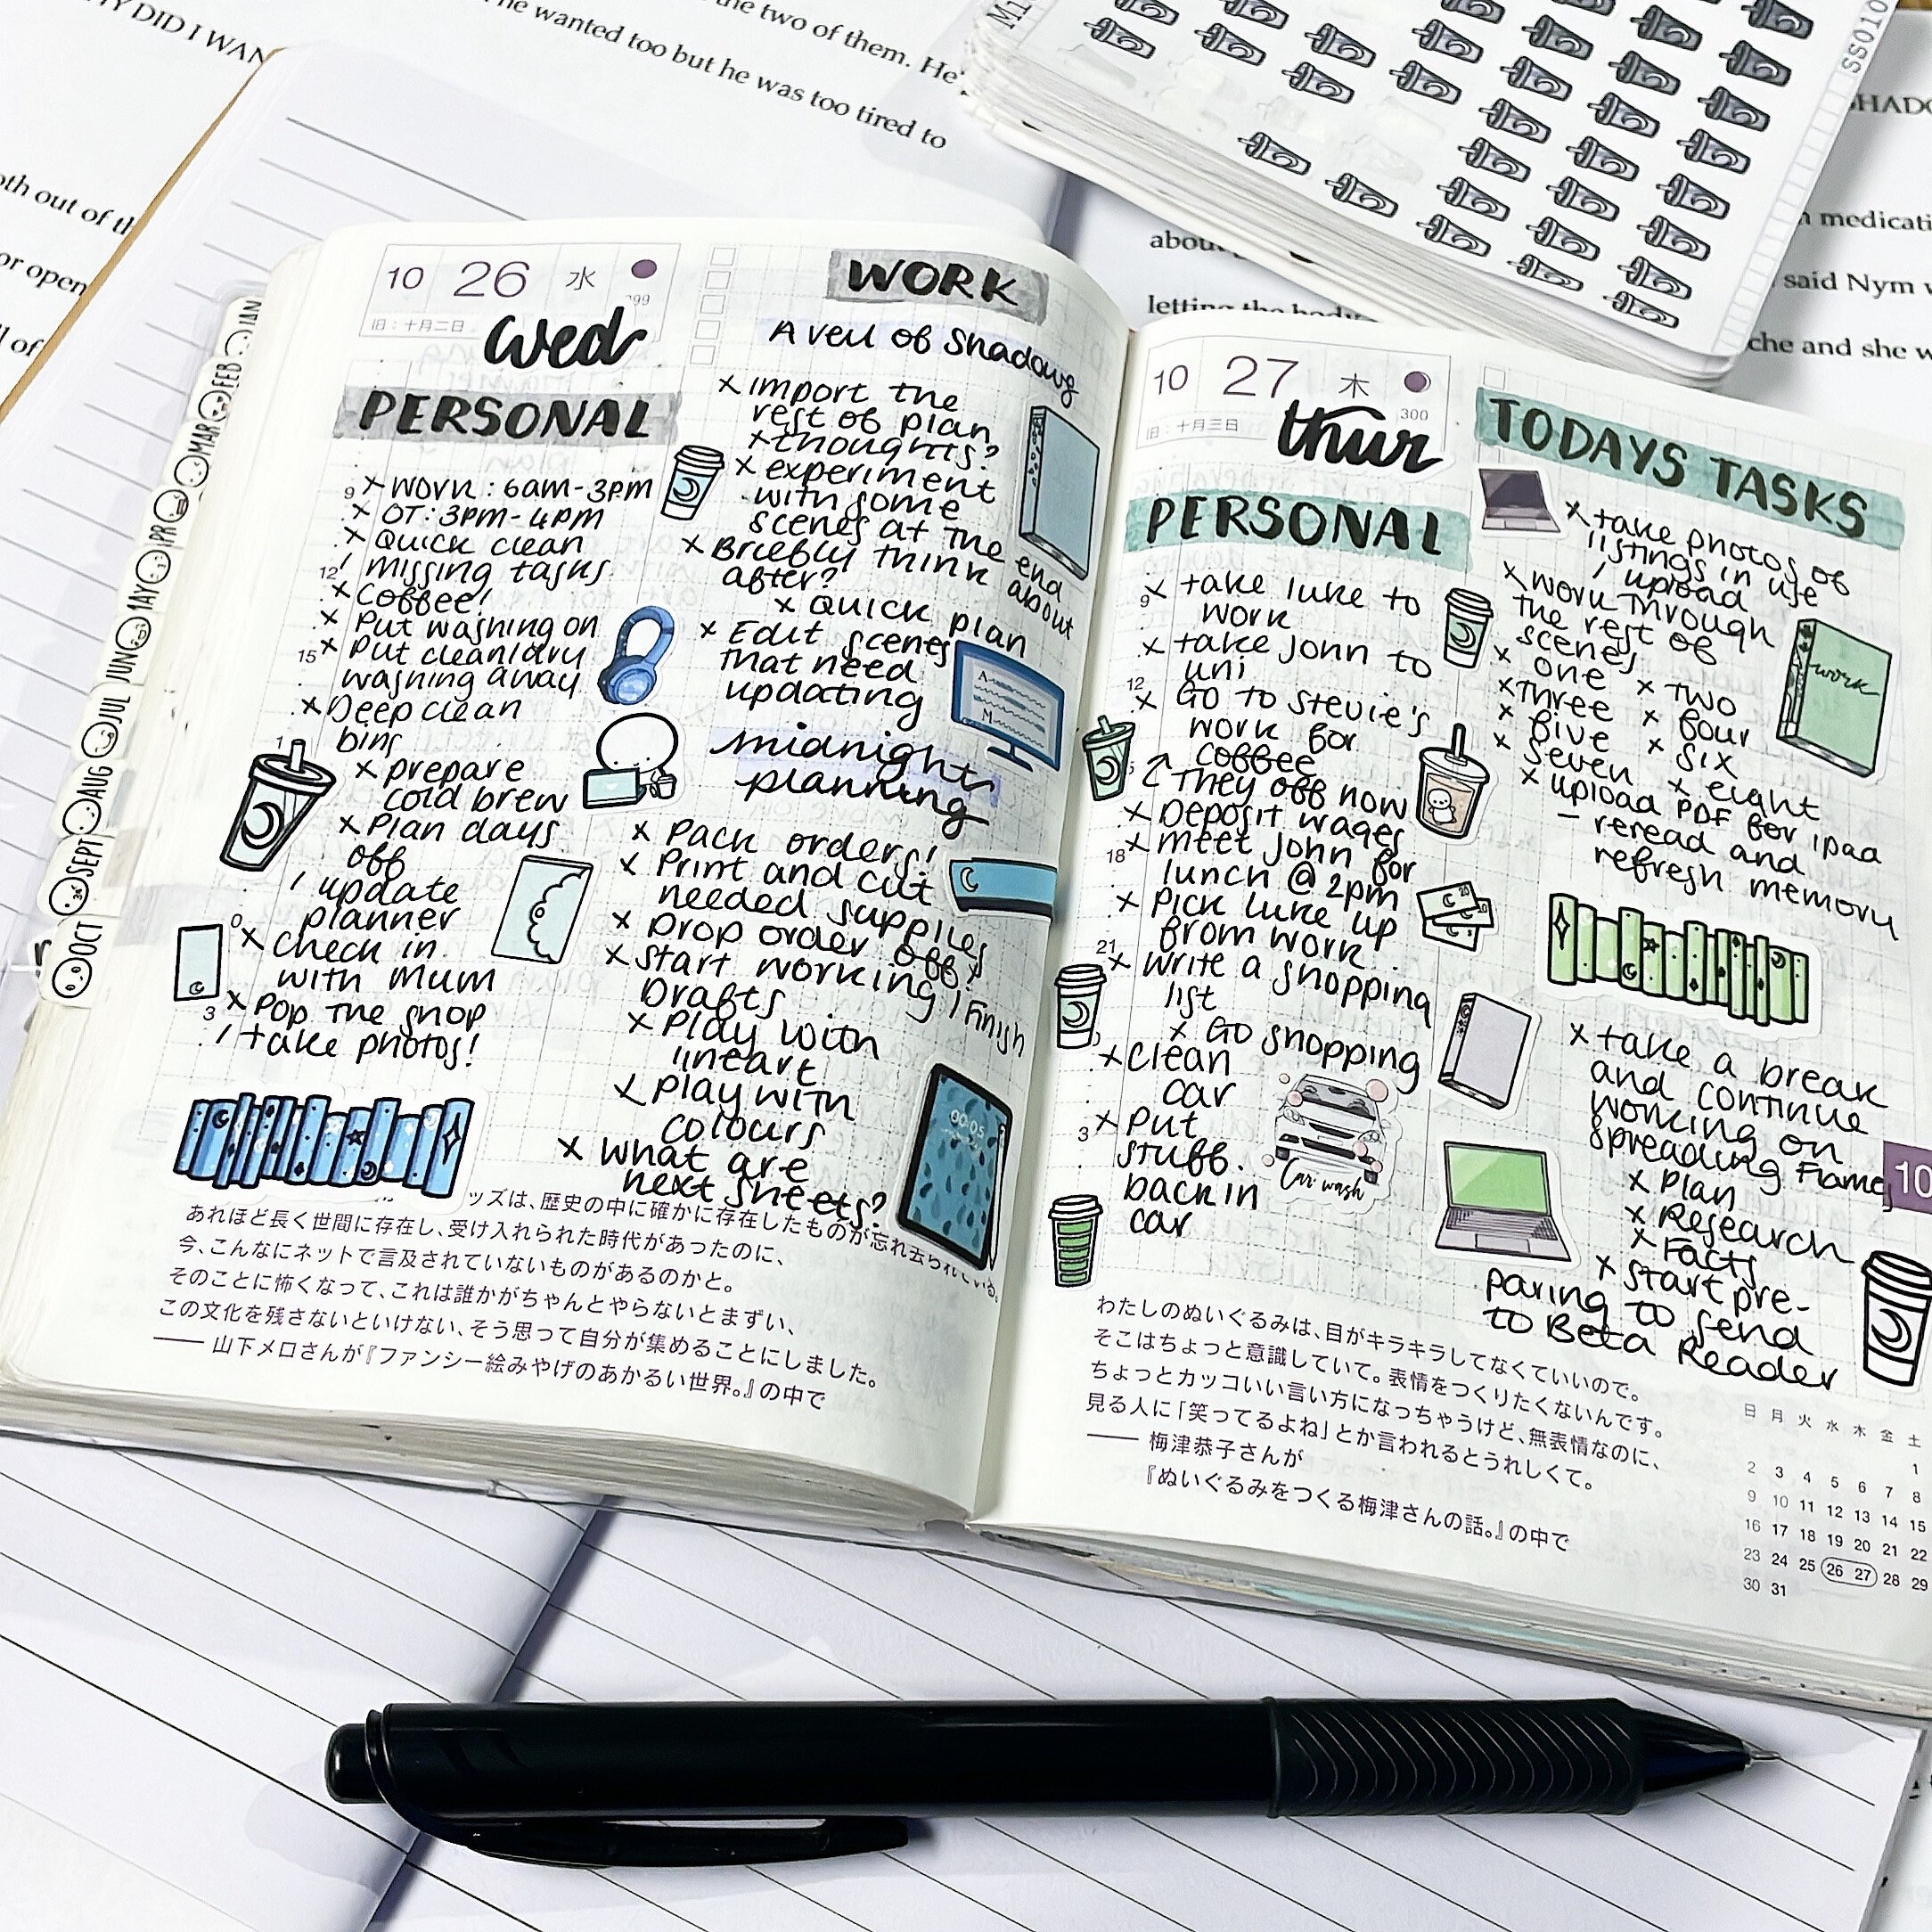 HY DID I WAN
he wanted too but he was too tired to
the two of them. He
oth out of th
or open
ll of
SS010
SHADO
n medicati
about
said Nym w
letting the body
che and she w
JAN
FEB
MAR
APR
MAY
JUN
JUL
AUG
SEPT
OCT
10 26 水
299
旧：十月二日
wed
PERSONAL
9 x WORK : 6am - 3PM
x OT : 3PM - 4PM
x Quick clean
12 / missing tasks
x Coffee!
x Put washing on
15 x Put clean/dry
washing away
x Deep clean
bins
x prepare
cold brew
x Plan days
off
/ update
planner
0 x Check in
with Mum
x Pop the shop
3 / take photos!
WORK
A veil of Shadows
x import the
rest of plan
x thoughts?
x experiment
with some
scenes at the end
x Briefly think about
after?
x Quick plan
x Edit scenes
that need
updating
midnight
planning
x Pack orders!
x Print and cut
needed supplies
x Drop order off!
x Start working / Finish
Drafts
x Play with
lineart
x Play with
colours
x What are
next sheets?
ッズは、歴史の中に確かに存在したものが忘れ去られている。
あれほど長く世間に存在し、受け入れられた時代があったのに、
今、こんなにネットで言及されていないものがあるのかと。
そのことに怖くなって、これは誰かがちゃんとやらないとまずい、
この文化を残さないといけない、そう思って自分が集めることにしました。
—— 山下メロさんが『ファンシー絵みやげのあかるい世界。』の中で
10 27 木
300
旧：十月三日
thur
PERSONAL
9 x take luke to
work
x take John to
uni
12 x Go to Stevie's
work for
coffee
They off now
x Deposit wages
18 x meet John for
lunch @ 2pm
x Pick Luke up
from work
21 x Write a shopping
list
x Go shopping
x Clean
car
3 x Put
stuff
back in
car
Car wash
TODAYS TASKS
x take photos of
listings in use
/ upload
x work through
the rest of
scenes
x one x two
x three x four
x five x six
x seven x eight
x upload PDF for ipad
- reread and
refresh memory
work
x take a break
and continue
working on
spreading Flame
x Plan
x Research
x Facts
x Start pre-
paring to send
to Beta Reader
10
わたしのぬいぐるみは、目がキラキラしてなくていいので。
そこはちょっと意識していて。表情をつくりたくないんです。
ちょっとカッコいい言い方になっちゃうけど、無表情なのに、
見る人に「笑ってるよね」とか言われるとうれしくて。
—— 梅津恭子さんが
『ぬいぐるみをつくる梅津さんの話。』の中で
日 月 火 水 木 金 土
1
2 3 4 5 6 7 8
9 10 11 12 13 14 15
16 17 18 19 20 21 22
23 24 25 26 27 28 29
30 31